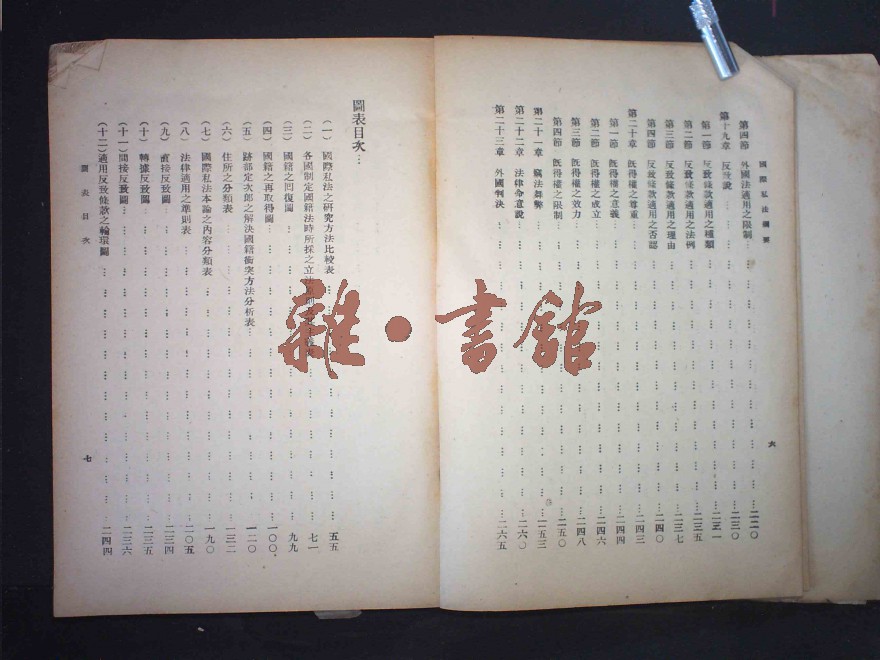 國際私法綱要
第四節 外國法適用之限制 二二〇
第十九章 反致說 二三〇
第一節 反致條款適用之種類 二三一
第二節 反致條款適用之法例 二三五
第三節 反致條款適用之理由 二三七
第四節 反致條款適用之否認 二四〇
第二十章 既得權之尊重 二四三
第一節 既得權之意義 二四四
第二節 既得權之成立 二四六
第三節 既得權之效力 二四八
第四節 既得權之限制 二五〇
第二十一章 竊法舞弊 二五三
第二十二章 法律令意說 二六〇
第二十三章 外國判決 二六五
六
圖表目次
(一) 國際私法之研究方法比較表 五五
(二) 各國制定國籍法時所採之立法 七一
(三) 國籍之回復圖 九九
(四) 國籍之再取得圖 一〇〇
(五) 跡部定次郎之解決國籍衝突方法分析表 一二〇
(六) 住所之分類表 一三二
(七) 國際私法本論之內容分類表 一九〇
(八) 法律適用之準則表 二〇五
(九) 直接反致圖 二三四
(十) 轉據反致圖 二三五
(十一) 間接反致圖 二三六
(十二) 適用反致條款之輪環圖 二四四
圖表目次
七
雜·書館